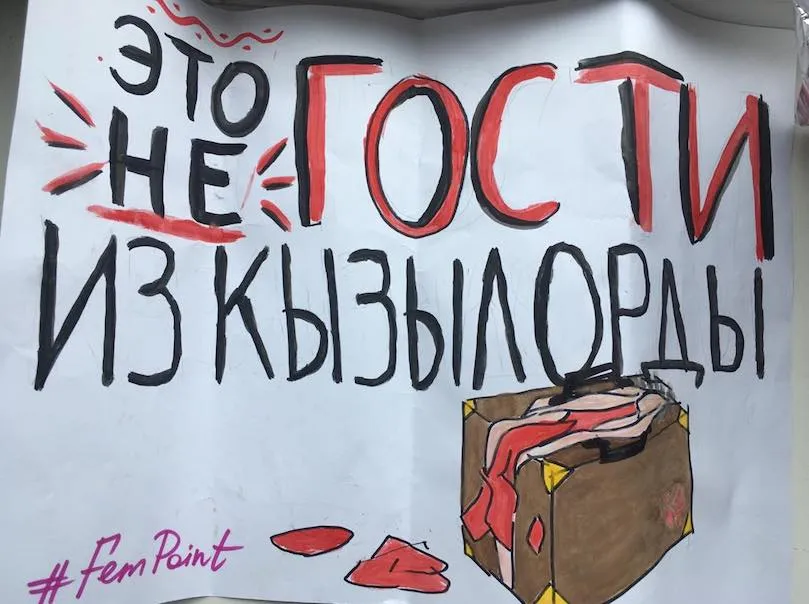 ЭТО
НЕ ГОСТИ
ИЗ КЫЗЫЛОРДЫ
#FemPoint